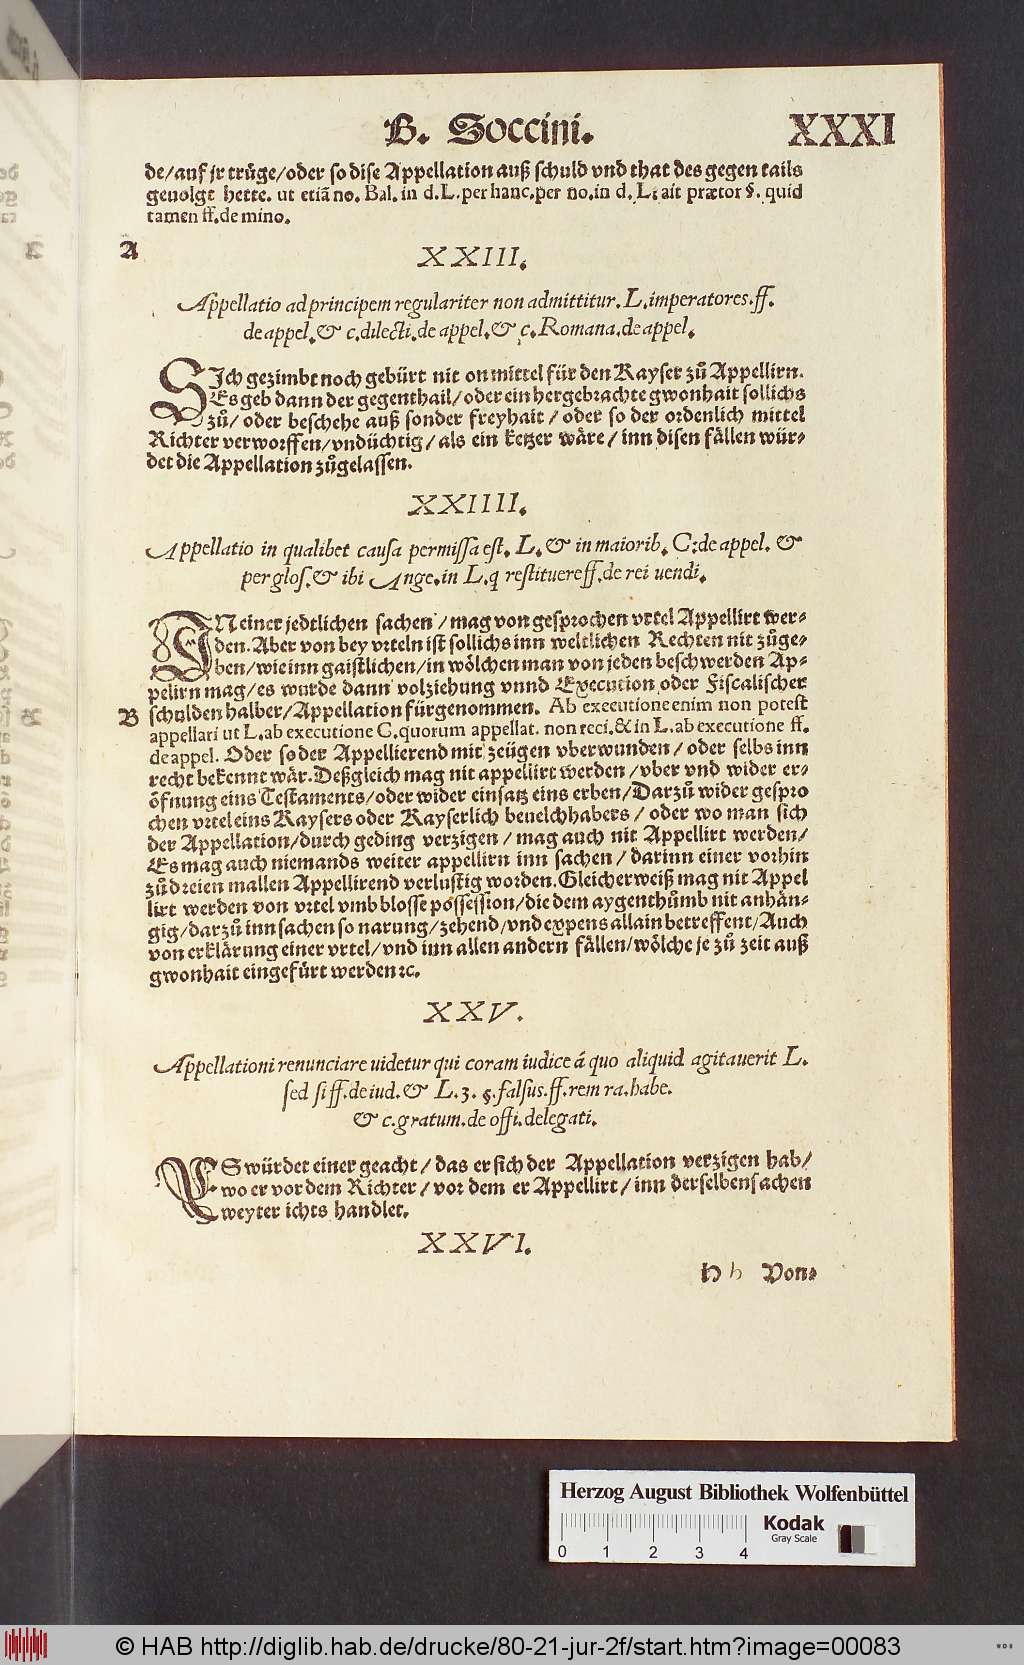 B. Soccini. XXXI
de/auf jr trüge/oder so dise Appellation auß schuld vnd that des gegen tails
geuolgt hette. ut etiã no. Bal. in d. L. per hanc. per no. in d. L. ait prætor §. quid
tamen ff. de mino.
A
XXIII.
Appellatio ad principem regulariter non admittitur. L. imperatores. ff.
de appel. & c. dilecti. de appel. & c. Romana. de appel.
SIch gezimbt noch gebürt nit on mittel für den Kayser zů Appellirn.
Es geb dann der gegenthail/oder ein hergebrachte gwonhait sollichs
zů/oder beschehe auß sonder freyhait/oder so der ordenlich mittel
Richter verworffen/vndüchtig/als ein ketzer wäre/inn disen fällen wür-
det die Appellation zůgelassen.
XXIIII.
Appellatio in qualibet causa permissa est. L. & in maiorib. C: de appel. &
per glos. & ibi Ange. in L. q restituere ff. de rei uendi.
IN einer jedtlichen sachen/mag von gesprochen vrtel Appellirt wer-
den. Aber von bey vrteln ist sollichs inn weltlichen Rechten nit zůge-
ben/wie inn gaistlichen/in wölchen man von jeden beschwerden Ap-
pelirn mag/es wurde dann volziehung vnnd Execution oder Fiscalischer
B
schulden halber/Appellation fürgenommen. Ab executione enim non potest
appellari ut L. ab executione C. quorum appellat. non reci. & in L. ab executione ff.
de appel. Oder so der Appellierend mit zeügen vberwunden/oder selbs inn
recht bekennt wär. Deßgleich mag nit appelliirt werden/vber vnd wider er-
öfnung eins Testaments/oder wider einsatz eins erben/Darzů wider gespro
chen vrtel eins Kaysers oder Kayserlich beuelchhabers/oder wo man sich
der Appellation/durch geding verzigen/mag auch nit Appellirt werden/
Es mag auch niemands weiter appellirn inn sachen/darinn einer vorhin
zů dreien mallen Appellirend verlustig worden. Gleicherweiß mag nit Appel
lirt werden von vrtel vmb blosse possession/die dem aygenthůmb nit anhän-
gig/darzů inn sachen so narung/zehend/vnd expens allain betreffent/Auch
von erklärung einer vrtel/vnd inn allen andern fällen/wölche je zů zeit auß
gwonhait eingefürt werden ꝛc.
XXV.
Appellationi renunciare uidetur qui coram iudice á quo aliquid agitauerit L.
sed si ff. de iud. & L. 3. §. falsus. ff. rem ra. habe.
& c. gratum. de offi. delegati.
ES würdet einer geacht/das er sich der Appellation verzigen hab/
wo er vor dem Richter/vor dem er Appellirt/inn derselben sachen
weyter ichts handlet.
XXVI.
H h Von-
Herzog August Bibliothek Wolfenbüttel
Kodak
Gray Scale
0 1 2 3 4
© HAB http://diglib.hab.de/drucke/80-21-jur-2f/start.htm?image=00083